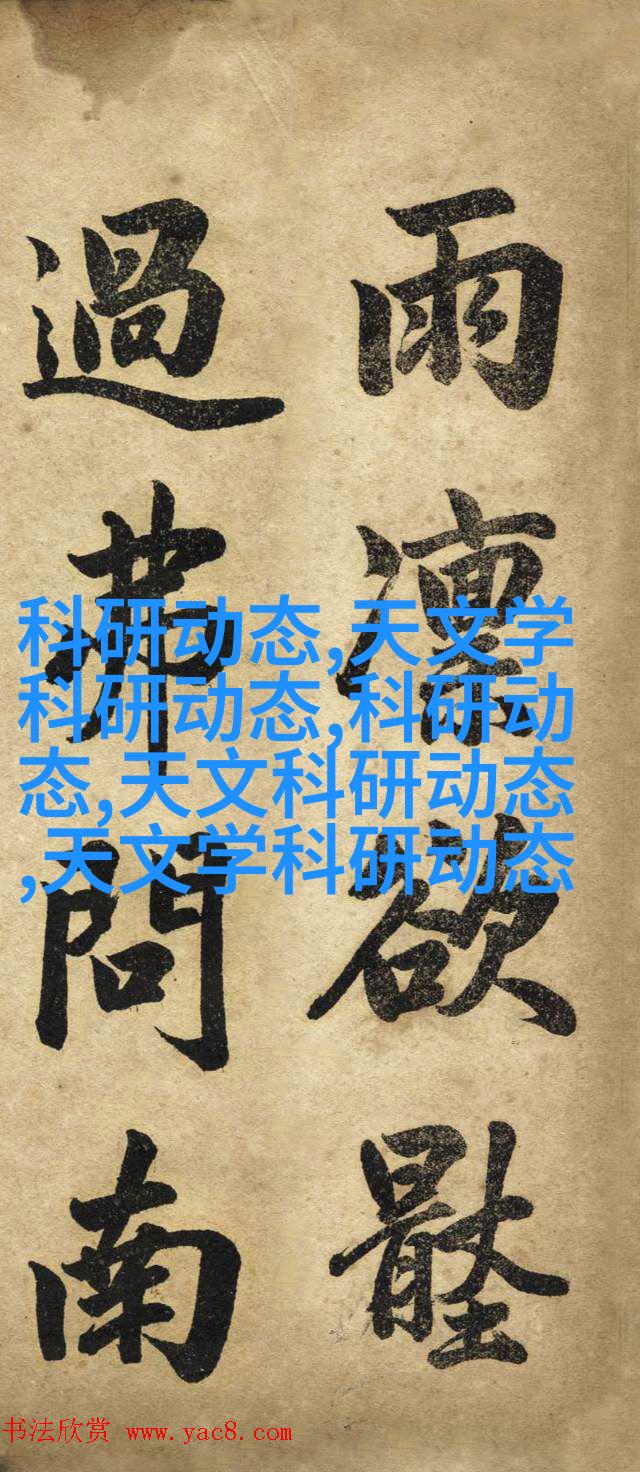 雨凛欲
過問南
科研动态,天文学
科研动态,科研动
态,天文科研动态
,天文学科研动态
书法欣赏 www.yac8.com